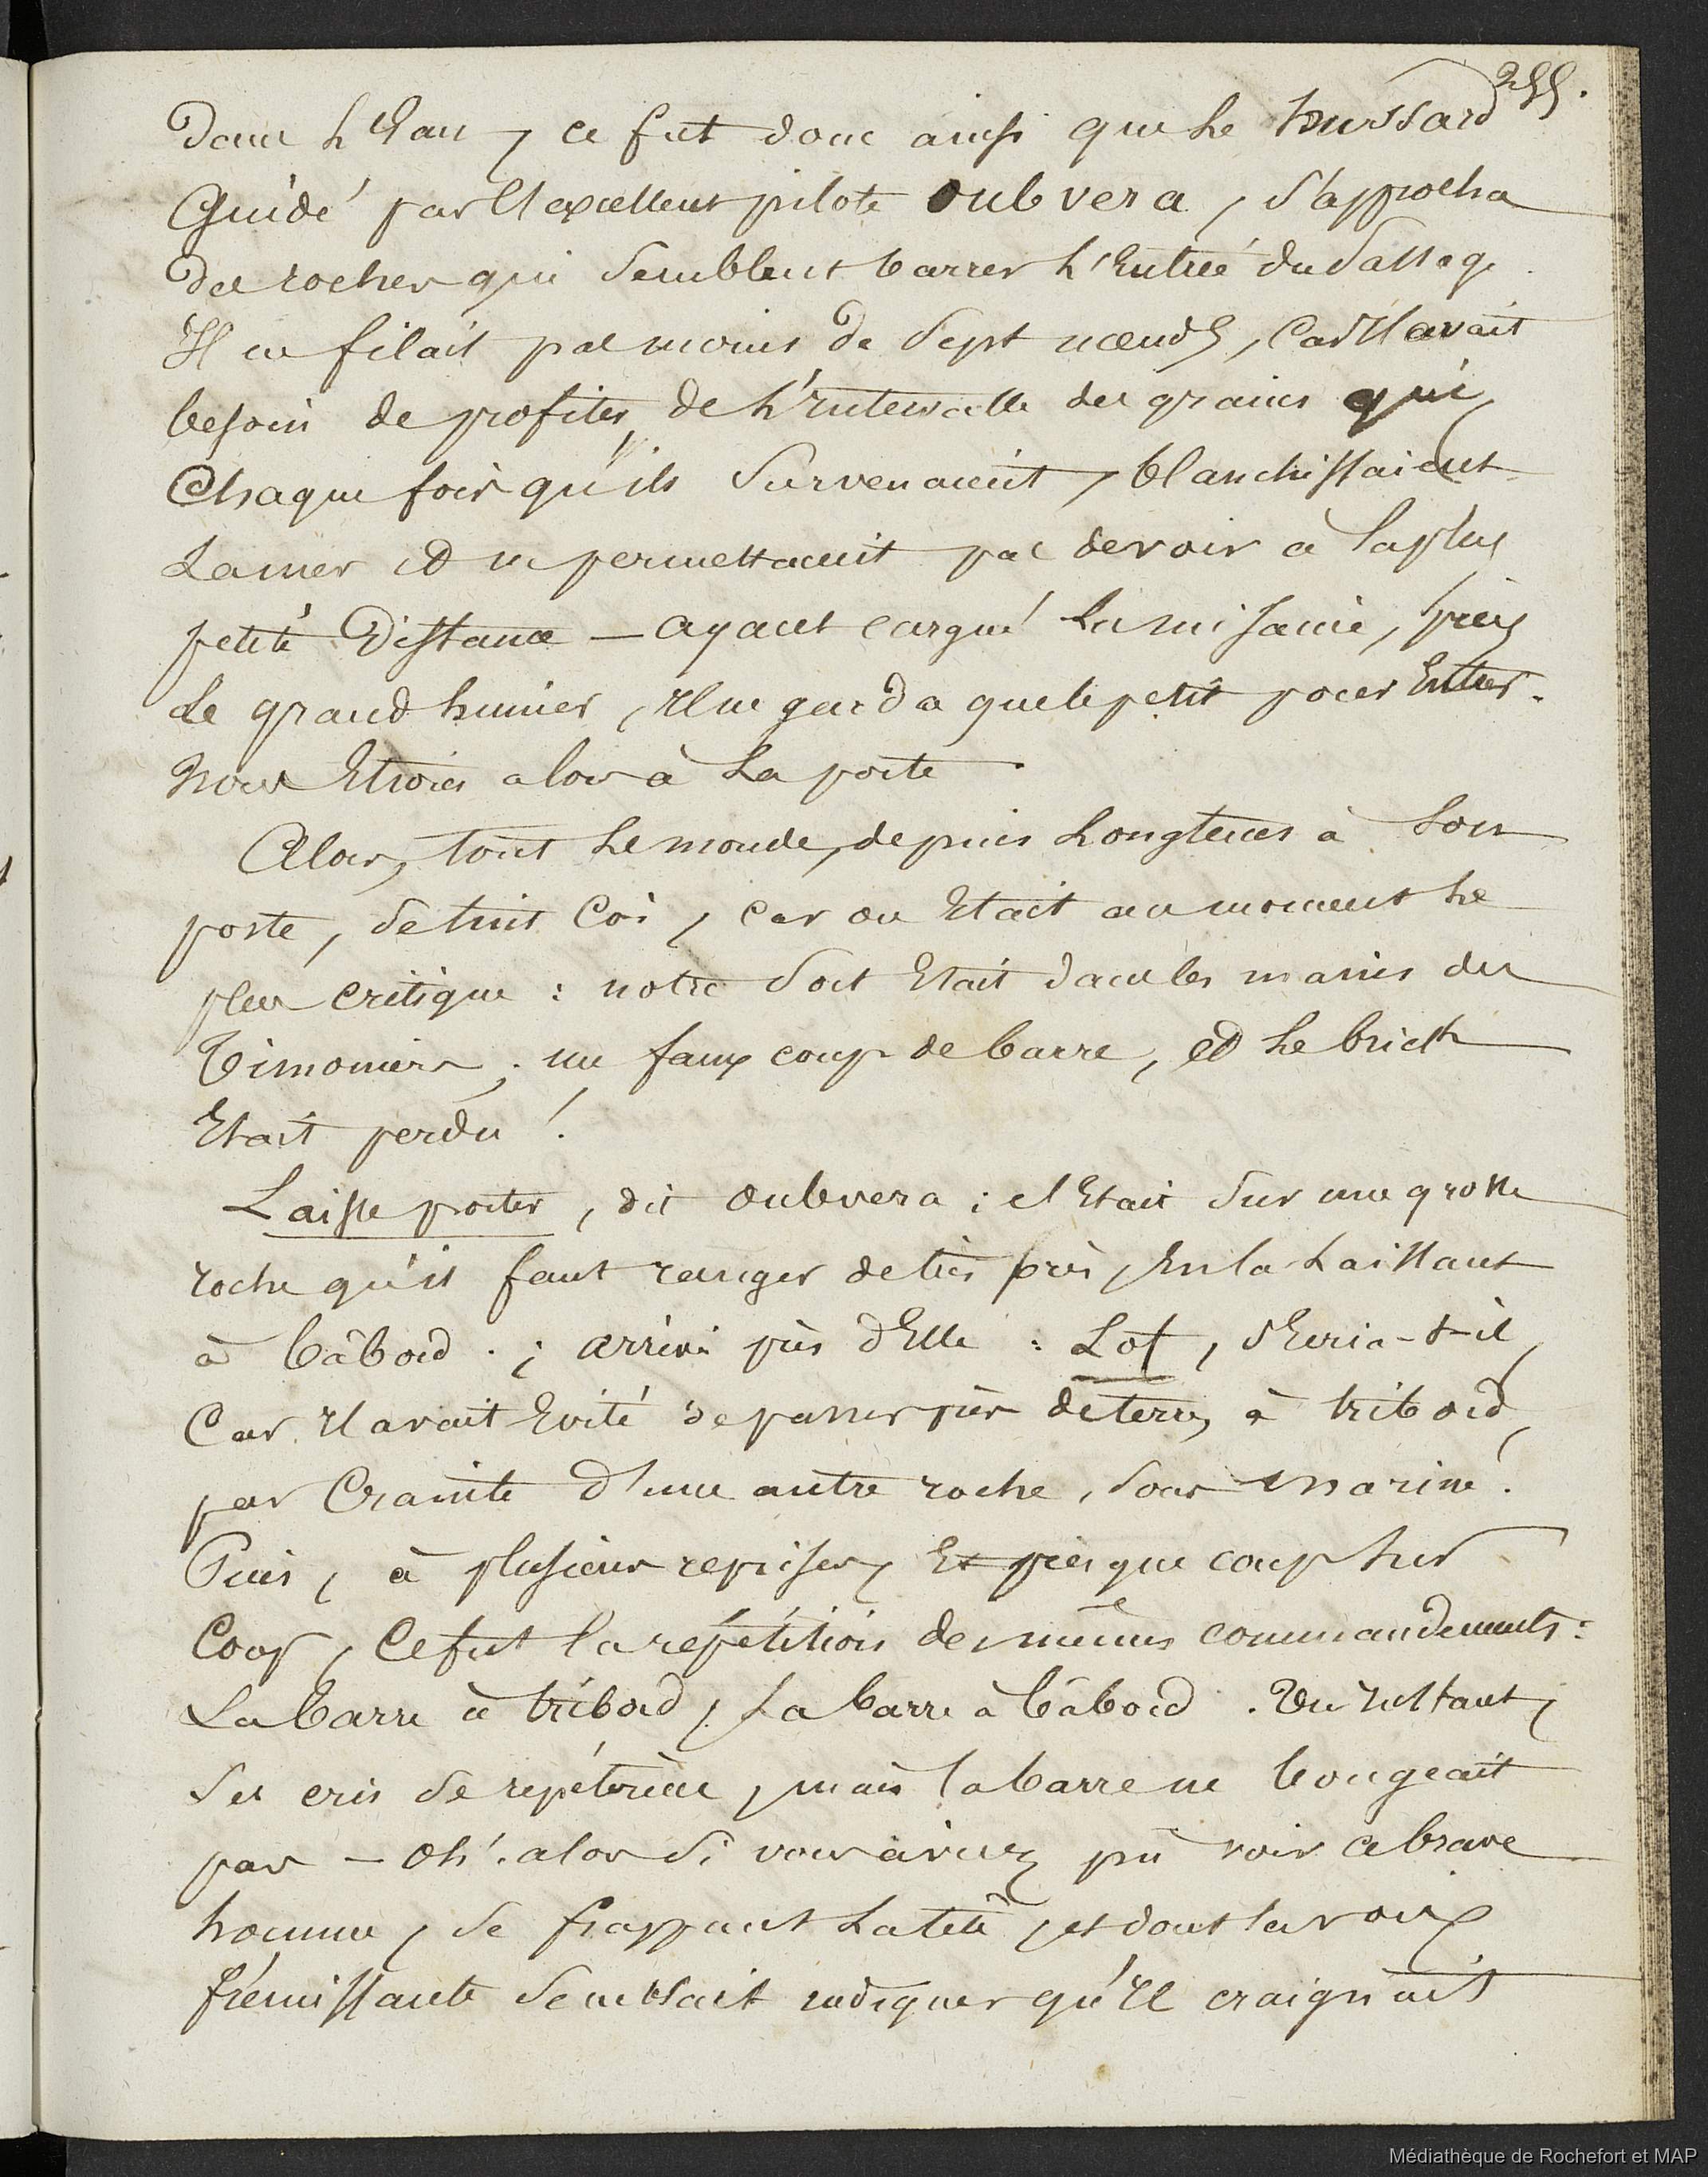 255.
dans l'Eau, ce fut donc ainsi que le hussard
Guidé par l'excellent pilote oubvera, s'approcha
des rochers qui semblent barrer l'Entrée du Passage.
Il ne filait pas moins de sept nœuds, car Il avait
besoin de profiter de l'Intervalle des grains qui,
Chaque fois qu'ils survenaient, blanchissaient
La mer et ne permettaient pas de voir à la plus
petite Distance — ayant cargué la misaine, puis
Le grand hunier, Il ne garda que le petit pour Entrer.
Nous Etions alors à La porte.
Alors, tout Le monde, depuis Longtems à son
poste, se tint Coi, car on Etait au moment le
plus critique : notre sort Etait dans les mains des
Timoniers ; un faux coup de barre, et Le brick
Etait perdu !
Laisse porter, dit oubvera ; c'Etait sur une grosse
roche qu'il faut ranger de très près, En la Laissant
à bâbord. ; arrivé près d'Elle : Lof, s'Ecria-t-il,
Car Il avait Evité de passer près de terre, à tribord,
par Crainte d'une autre roche, sous marine !
Puis, à plusieurs reprises, Et presque coup sur
Coup, Ce fut la repétition des mêmes commandements :
La barre à tribord, La barre à bâbord. Un Instant,
Ses cris se repétèrent, mais la barre ne bougeait
pas — oh ! alors si vous aviez pû voir ce brave
homme, se frappant La tête, et dont la voix
frémissante semblait indiquer qu'Il craignait
Médiathèque de Rochefort et MAP